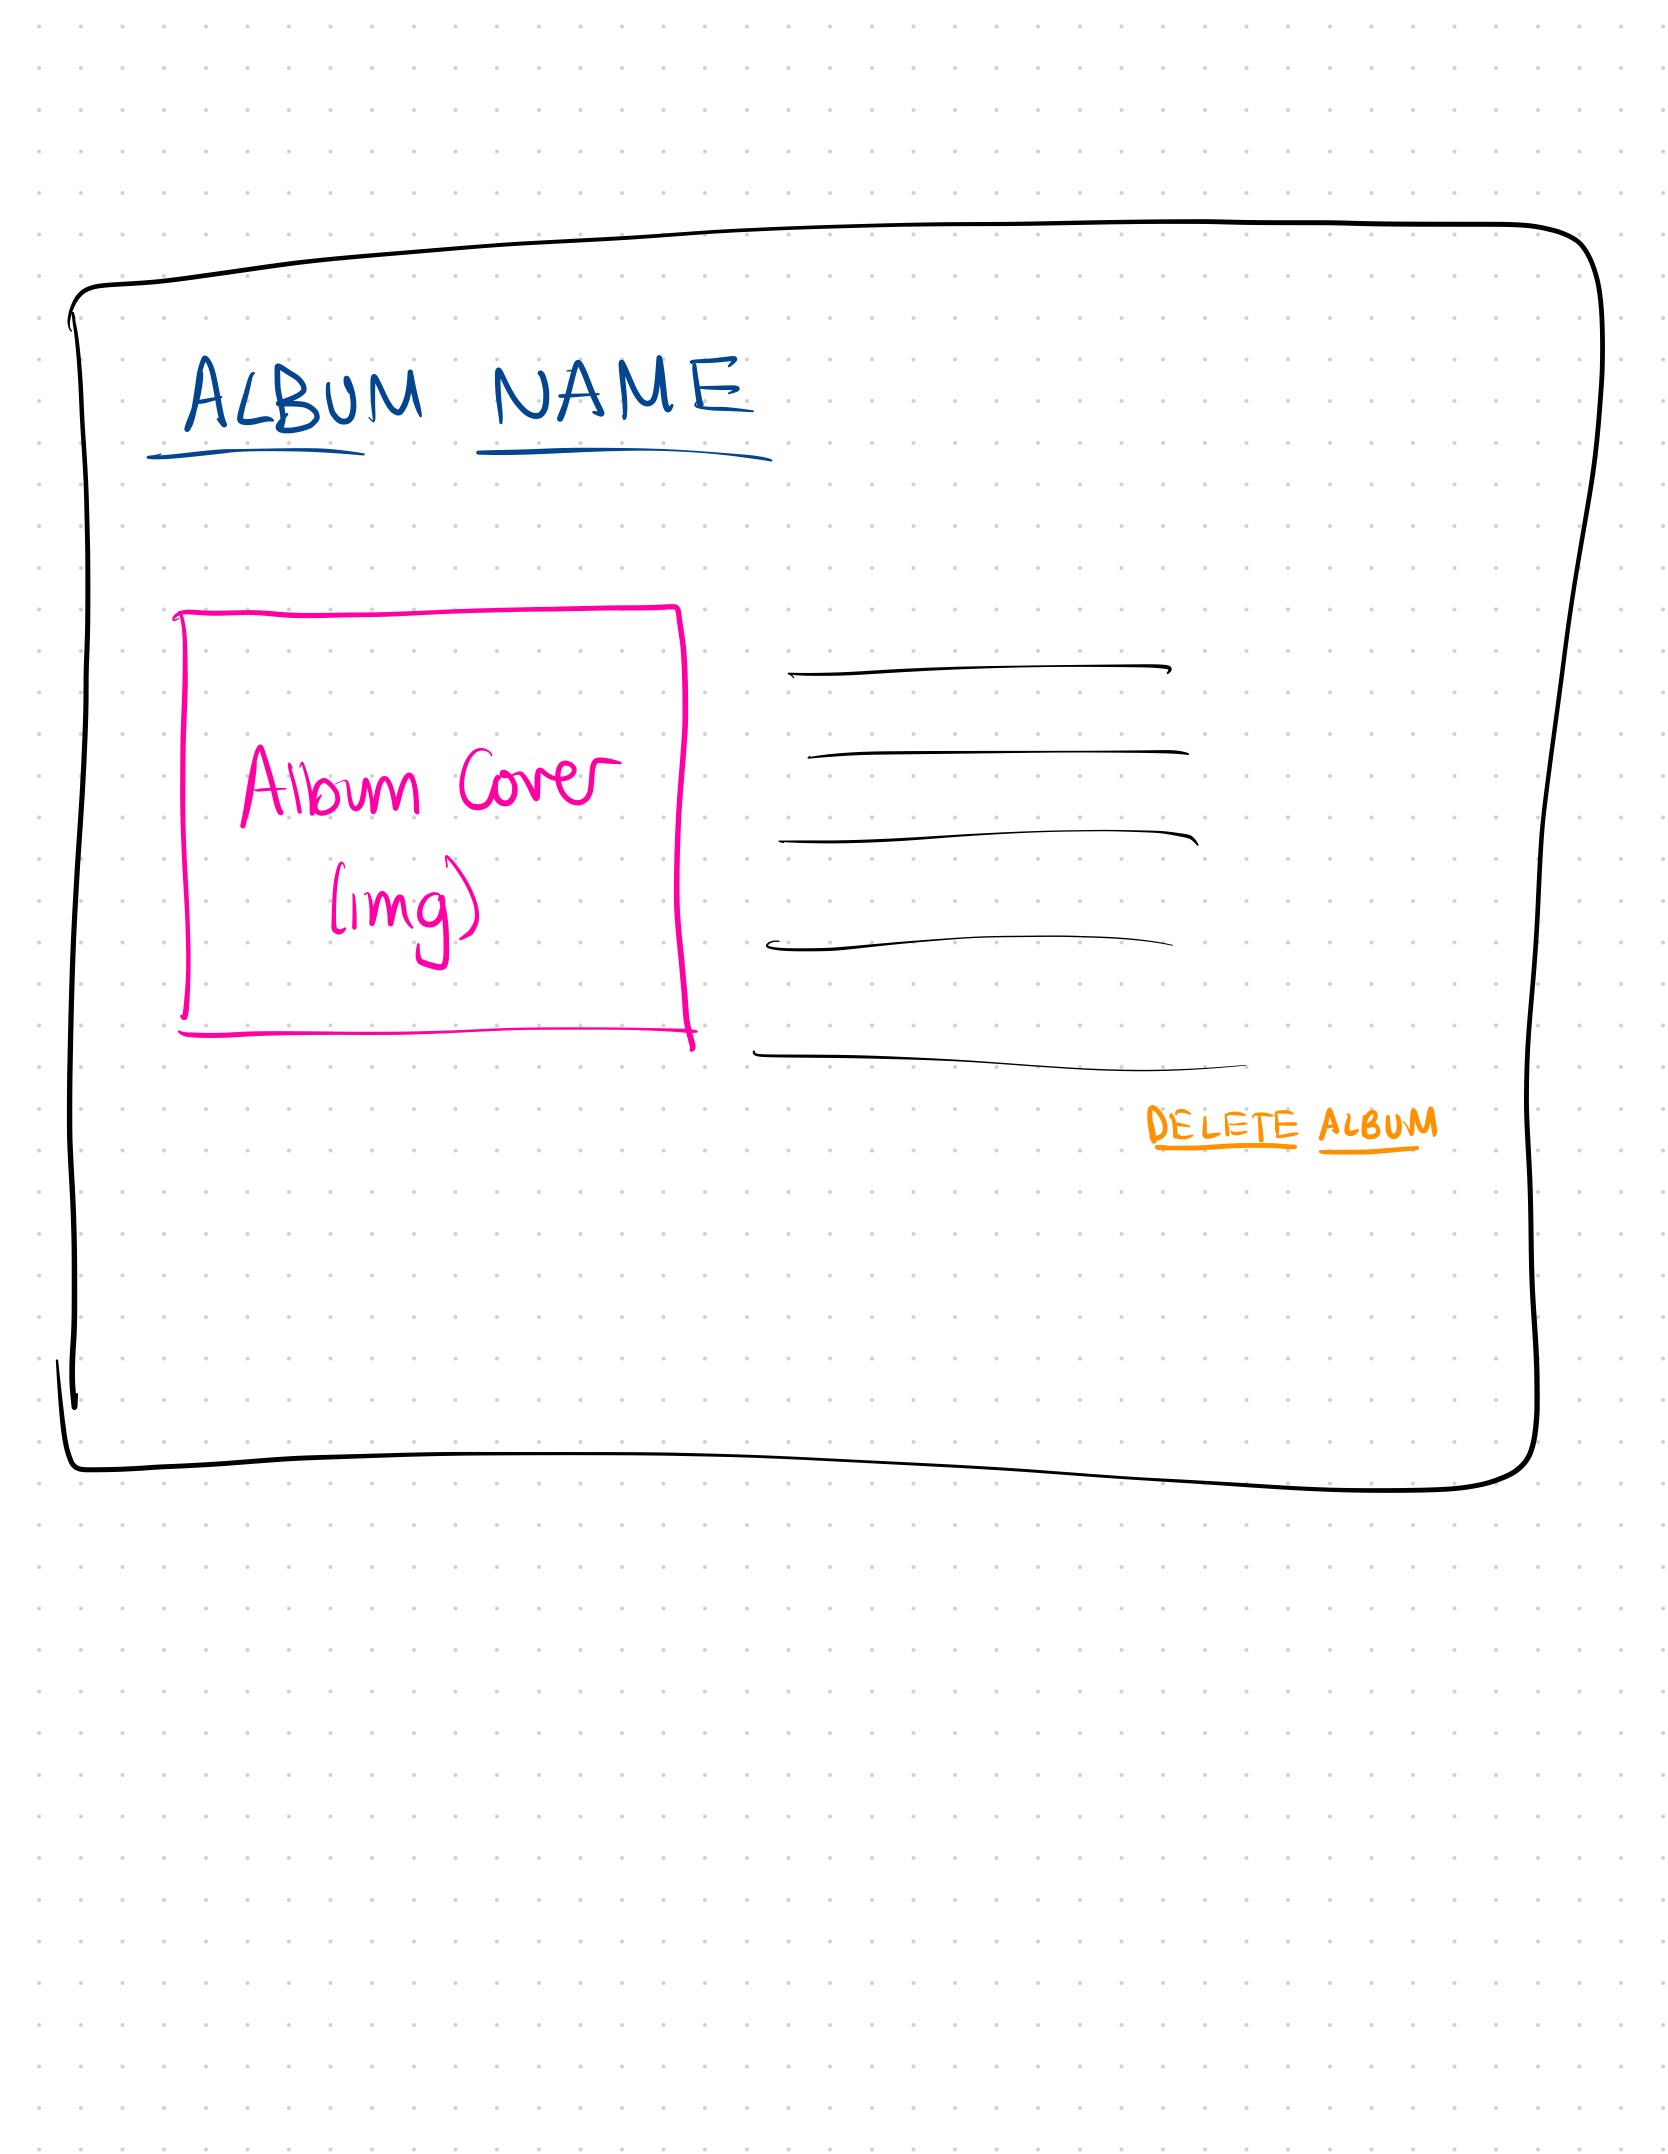 ALBUM NAME
Album Cover
(img)
DELETE ALBUM